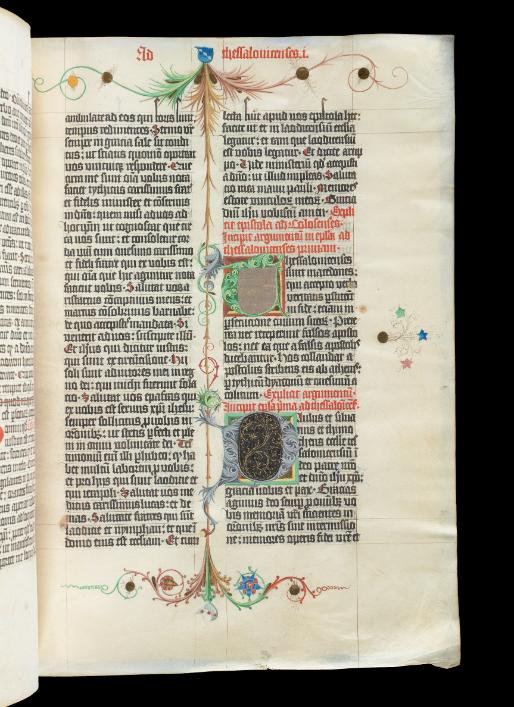 Ad thessalonicenses.i.
ambulate ad eos qui foris sunt:
tempus redimentes. Sermo vester
semper in gratia sale sit condi-
tus: ut sciatis quomodo oporteat
vos unicuique respondere. Que
circa me sunt omnia vobis nota
faciet tythicus carissimus frater
et fidelis minister et conservus
in domino: quem misi ad vos ad
hoc ipsum ut cognoscat que cir-
ca vos sunt: et consoletur cor-
da vestra cum onesimo carissimo
et fideli fratre qui ex vobis est:
qui omnia que hic aguntur nota
facient vobis. Salutat vos a-
ristarcus concaptivus meus: et
marcus consobrinus barnabe:
de quo accepistis mandata. Si
venerit ad vos: suscipite illum.
Et ihesus qui dicitur iustus:
qui sunt ex circumcisione. Hii
soli sunt adiutores mei in reg-
no dei: qui michi fuerunt sola-
cio. Salutat vos epafras qui
ex vobis est servus cristi ihesu:
semper sollicitus pro vobis in
orationibus: ut stetis perfecti et ple-
ni in omni voluntate dei. Tes-
timonium enim illi perhibeo: quod ha-
bet multum laborem pro vobis:
et pro hiis qui sunt laodicie et
qui ierapoli. Salutat vos lu-
cas medicus carissimus: et de-
mas. Salutate fratres qui sunt
laodicie et nympham: et que in
domo eius est ecclesiam. Et cum
lecta fuerit apud vos epistola hec:
facite ut et in laodicensium ecclesia
legatur: et eam que laodicensium
est vobis legatur. Et dicite archip-
po. Vide ministerium quod accepisti
a domino: ut illud impleas. Saluta-
cio mea manu pauli. Memores
estote vinculorum meorum. Gracia
domini ihesu vobiscum amen. Expli-
cit epistola ad Colosenses.
Incipit argumentum in epistolam ad
thessalonicenses primam.
Thessalonicenses
sunt macedones:
qui accepto verbo
veritatis perstiterunt
in fide: etiam in
persecutione civium suorum. Prete-
rea nec receperunt falsos aposto-
los: nec ea que a falsis apostolis
dicebantur. Hos collaudat a-
postolus scribens eis ab athenis:
per tythicum dyaconum et onesimum a-
colitum. Explicit argumentum.
Incipit epistola prima ad thessalonicenses.
Paulus et silva-
nus et thimo-
theus ecclesie thes-
salonicensium in
deo patre nostro
et domino ihesu cristo:
gracia vobis et pax. Gracias
agimus deo semper pro omnibus vo-
bis memoriam vestri facientes in
orationibus nostris sine intermissio-
ne: memores operis fidei vestre et